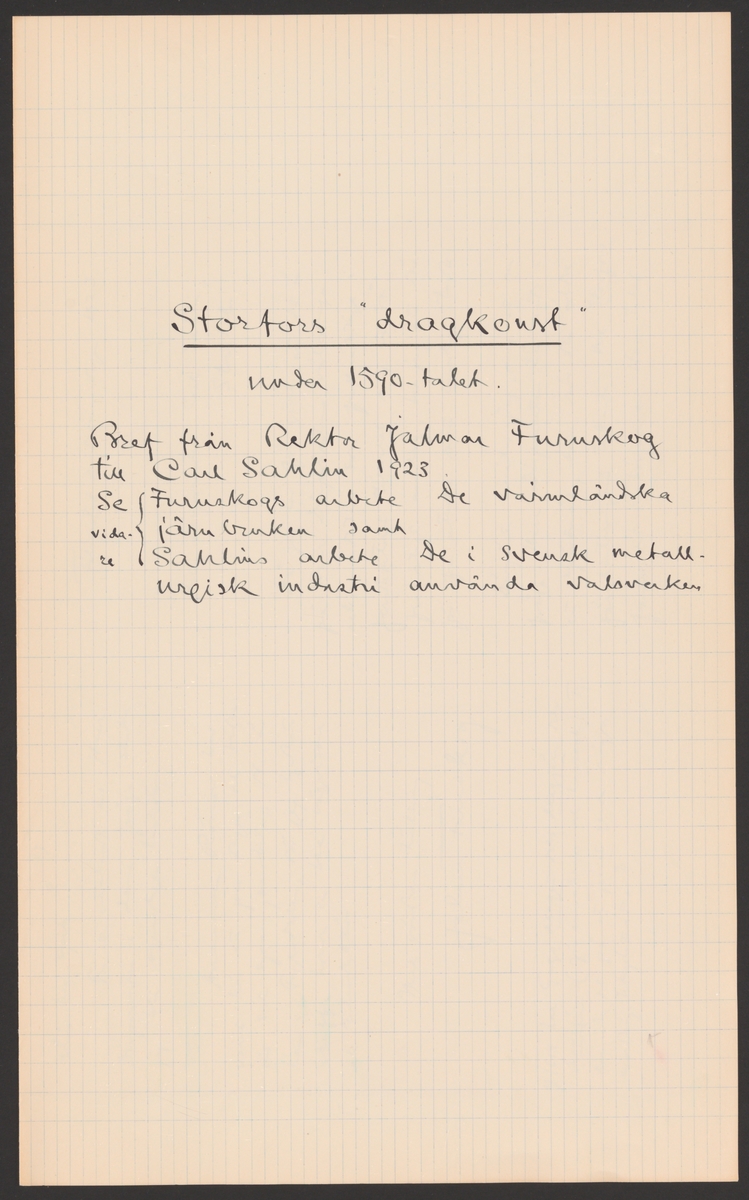 Storfors "dragkonst"
under 1590-talet.
Bref från Rektor Jalmar Furuskog
till Carl Sahlin 1923.
Se { Furuskogs arbete De värmländska
vida- järnbruken samt
re Sahlins arbete De i svensk metall-
urgisk industri använda valsverken